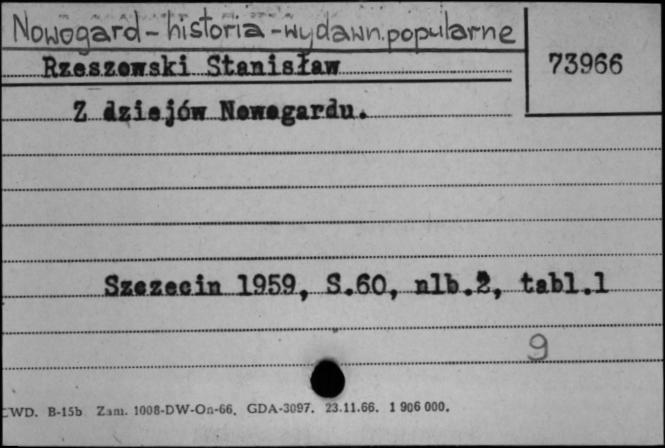 Nowogard - historia - wydawn. popularne
Rzeszowski Stanisław
73966
Z dziejów Nowogardu.
Szczecin 1959, S.60, nlb.2, tabl.1
9
CWD. B-15b Zam. 1008-DW-Oa-66. GDA-3097. 23.11.66. 1 906 000.